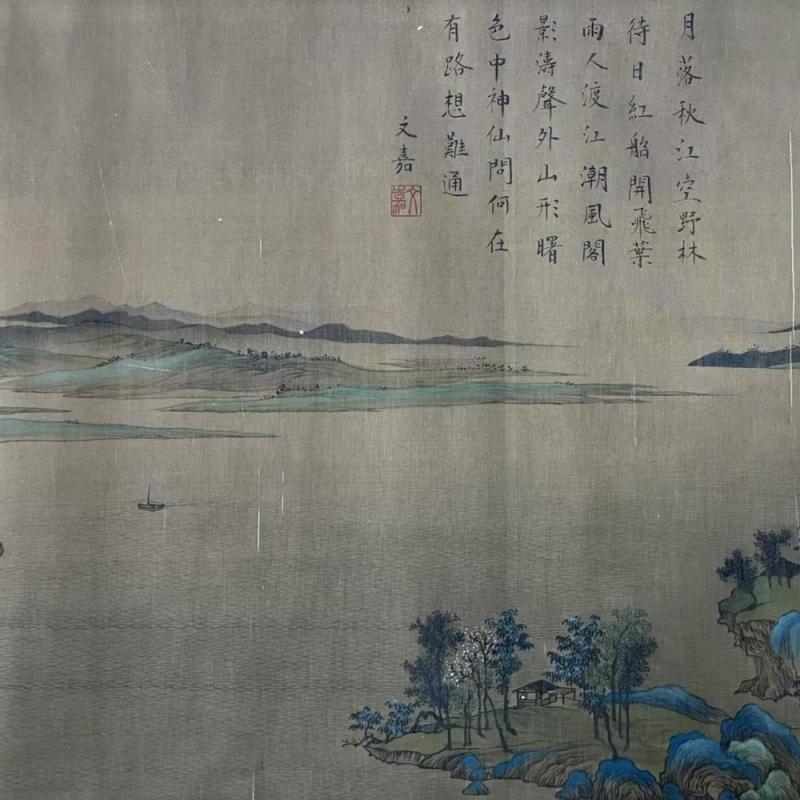 月落秋江空野林
待日紅船開飛葉
雨人渡江潮風閣
影濤聲外山形曙
色中神仙問何在
有路想難通
文嘉
文嘉